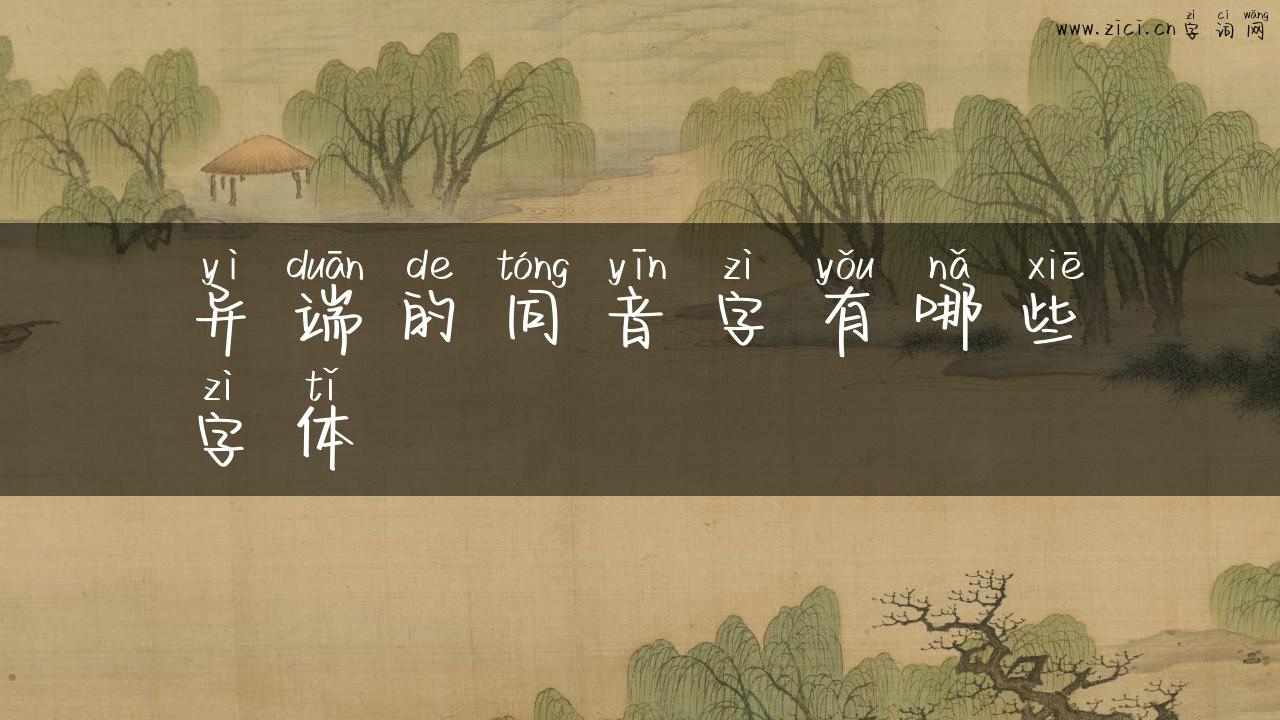 zì cí wǎng
www.zici.cn 字 词 网
yì duān de tóng yīn zì yǒu nǎ xiē
异 端 的 同 音 字 有 哪 些
zì tǐ
字 体